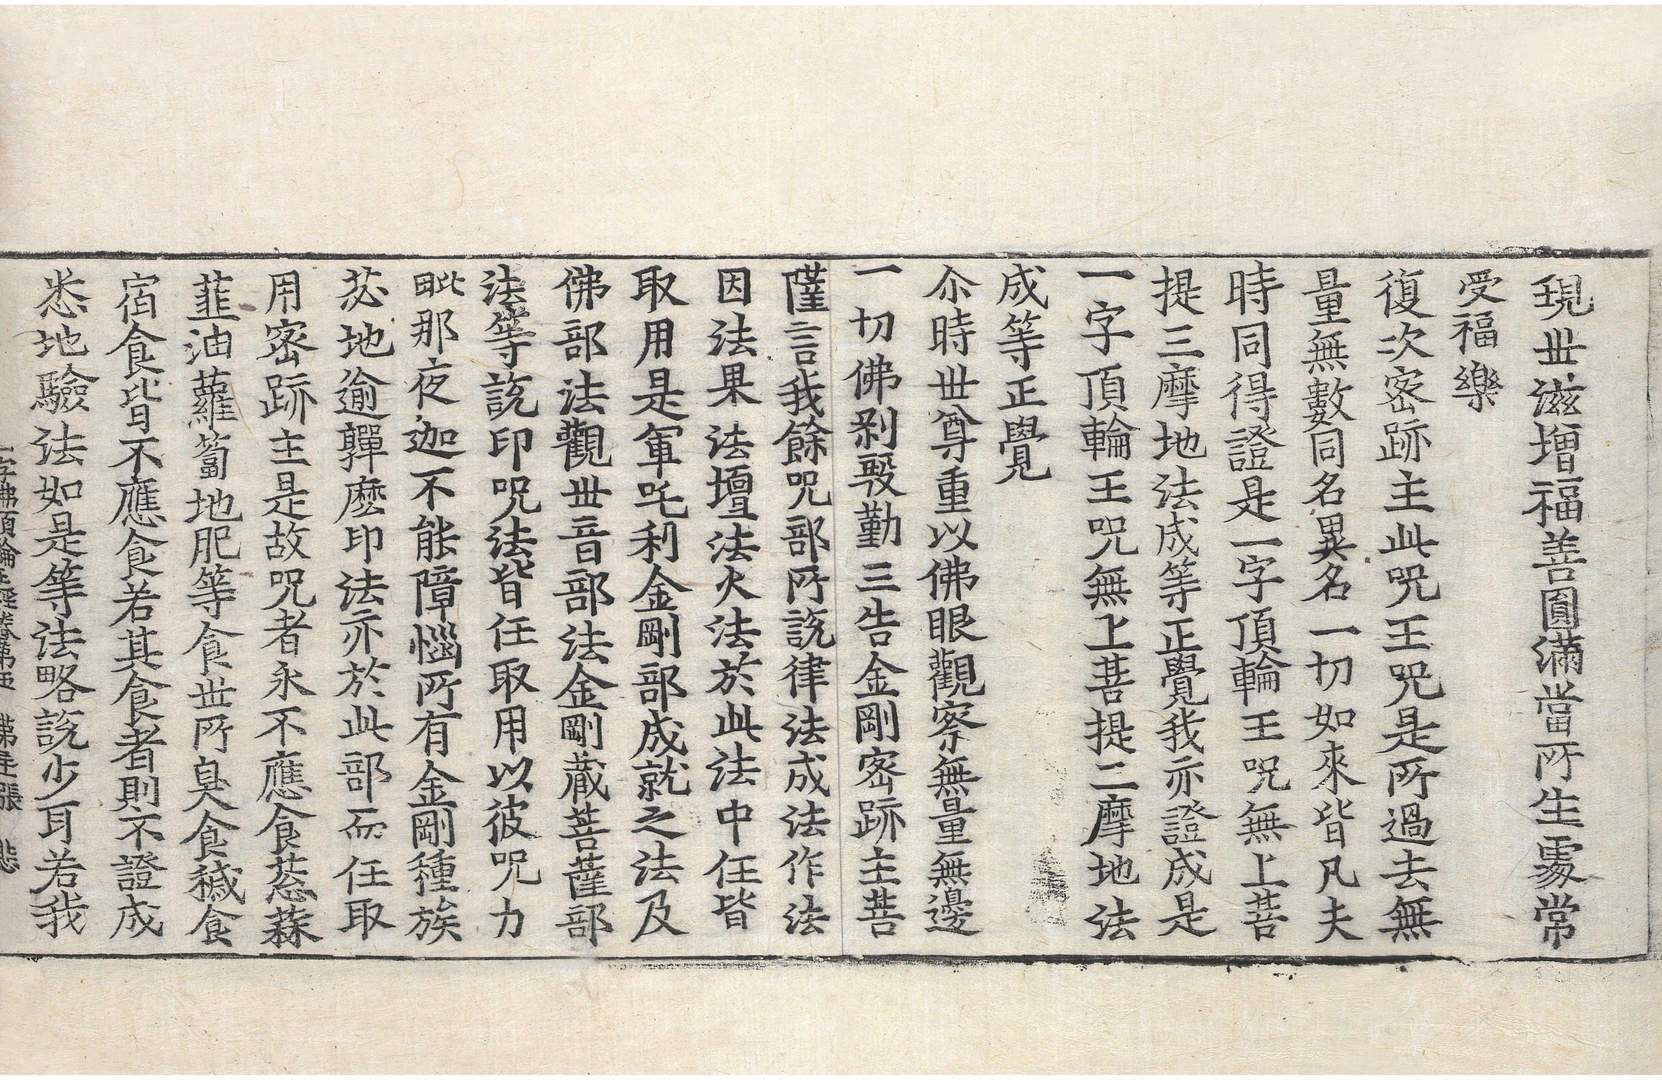 現世滋增福善圓滿當所生處常
受福樂
復次密跡主此呪王呪是所過去無
量無數同名異名一切如來皆凡夫
時同得證是一字頂輪王呪無上菩
提三摩地法成等正覺我亦證成是
一字頂輪王呪無上菩提三摩地法
成等正覺
尒時世尊重以佛眼觀察無量無邊
一切佛剎毀勤三告金剛密跡主菩
薩言我餘呪部所說律法成法作法
因法果法壇法火法於此法中任皆
取用是軍吒利金剛部成就之法及
佛部法觀世音部法金剛藏菩薩部
法等說印呪法皆任取用以彼呪力
毗那夜迦不能障惱所有金剛種族
苾地逾韗麼印法亦於此部而任取
用密跡主是故呪者永不應食葱蒜
韮油蘿蔔地肥等食世所臭食穢食
宿食皆不應食若其食者則不證成
悉地驗法如是等法略說少耳若我
一字佛頂輪王經卷第五 第三張 悲